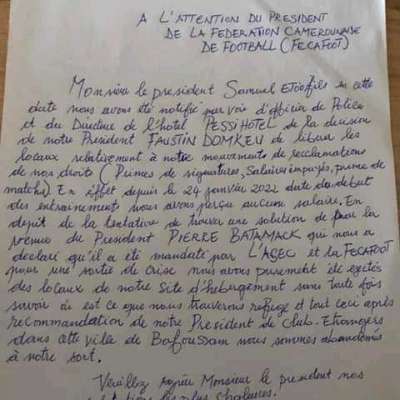 A L'ATTENTION DU PRESIDENT
DE LA FEDERATION CAMEROUNAISE
DE FOOTBALL (FECAFOOT)
Monsieur le président Samuel Eto'o fils en cette
date nous avons été notifié par voie d'officier de Police
et du Directeur de l'hotel PESSI HOTEL de la decision
de notre President FAUSTIN DOMKEU de liberer les
locaux relativement à notre mouvements de reclamations
de nos droits (Primes de signatures, Salaires impayés, prime de
matchs) En effet depuis le 24 janvier 2022 date du debut
des entrainements nous avons perçu aucun salaire. En
depit de la tentative de trouver une solution de par la
présence du President PIERRE BATAMACK qui nous a
declaré qu'il a eté mandaté par L'AGEC et la FECAFOOT
pour une sortie de crise nous avons purement été ejectés
des locaux de notre Site d'hebergement sans toute fois
savoir où est ce que nous trouverons refuge et tout ceci après
recommandation de notre President de Club. Etrangers
dans cette ville de Bafoussam nous sommes abandonnés
à notre sort.
Veuillez Monsieur le president nos
les plus chaleureuses.